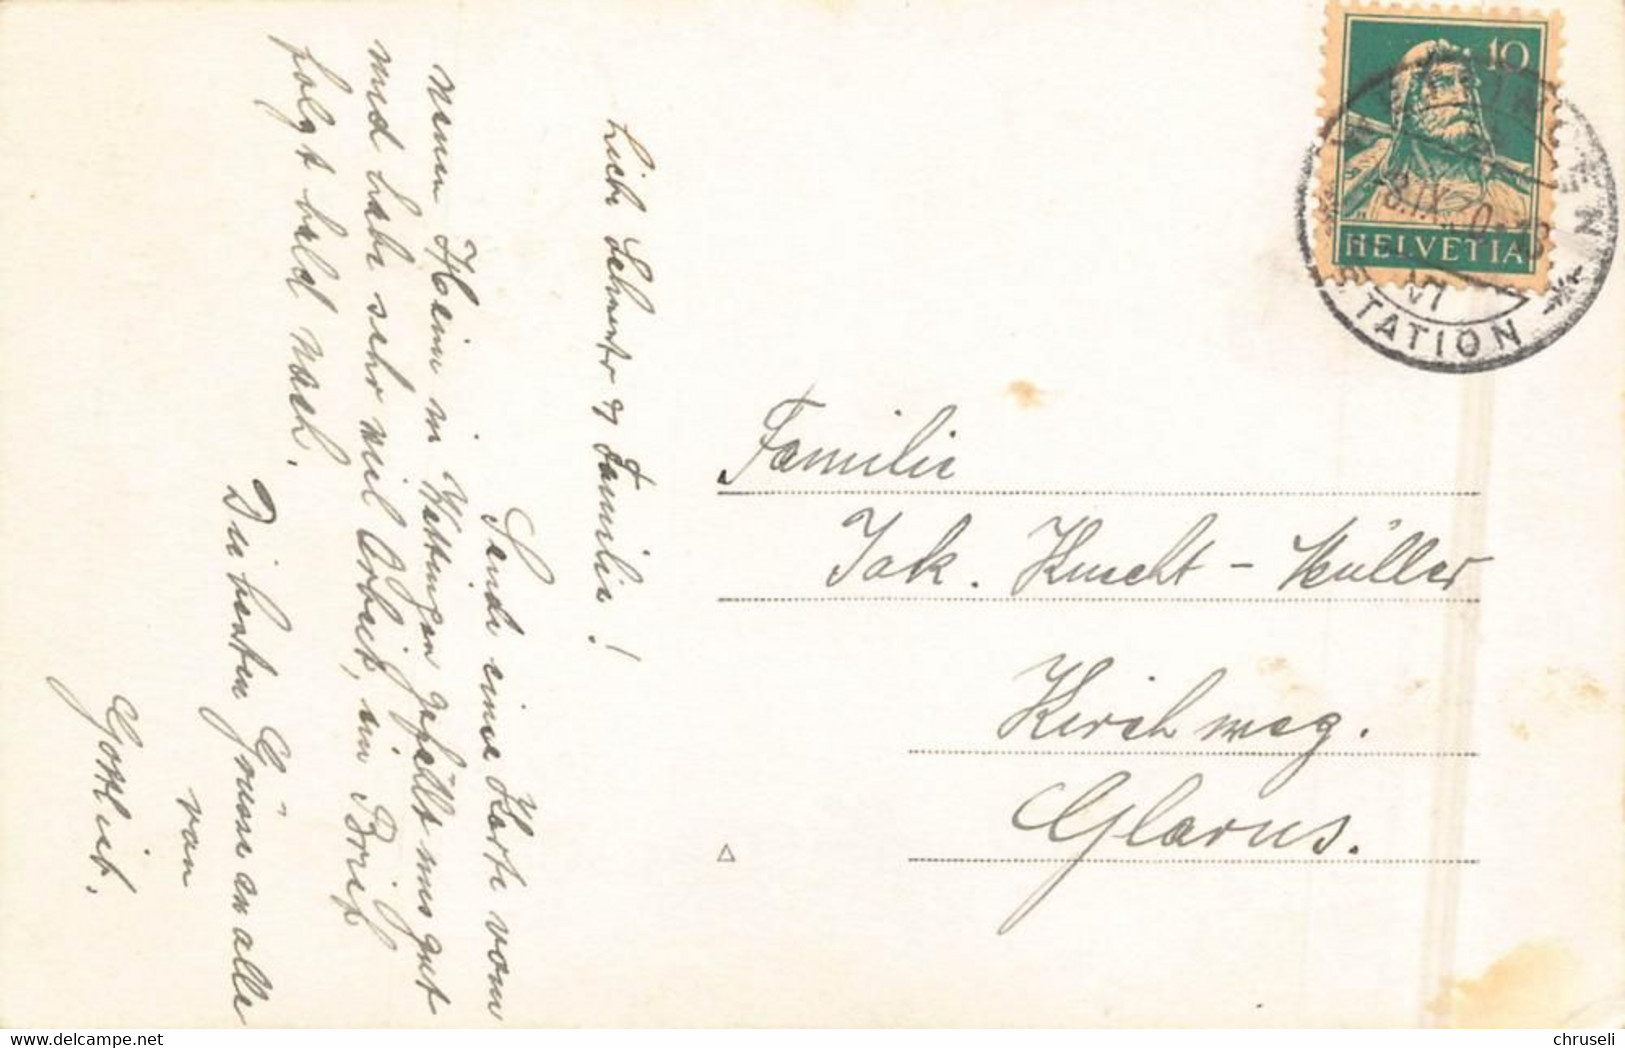 Liebe Schwester & Familie!
Sende eine Karte vom
neuen Heim in Wettingen gefällt mir gut
und habe sehr viel Arbeit, ein Brief
folgt bald nach.
Die besten Grüsse an alle
von
Gottlieb.
10
HELVETIA
WETTINGEN
STATION
Familie
Jak. Knecht-Müller
Kirchweg.
Glarus.
delcampe.net
chruseli